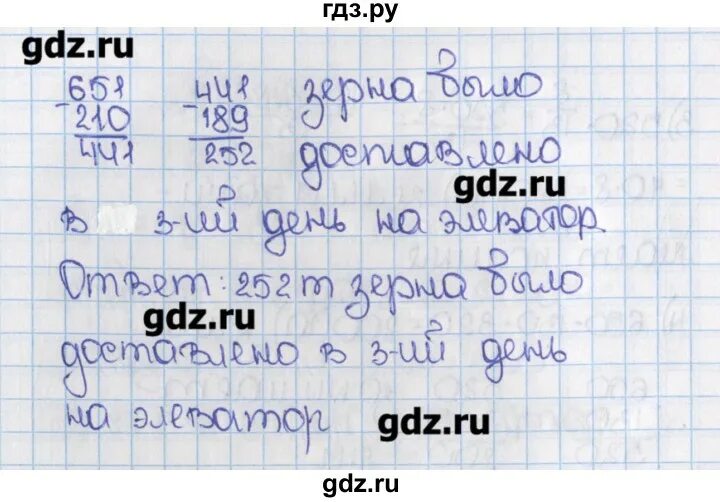 гдз.ру
gdz.ru
651 441 зерна было
- 210 - 189
441 252 доставлено
gdz.ru
в 3-ий день на элеватор
Ответ: 252 т зерна было
gdz.ru
доставлено в 3-ий день
на элеватор gdz.ru
gdz.ru